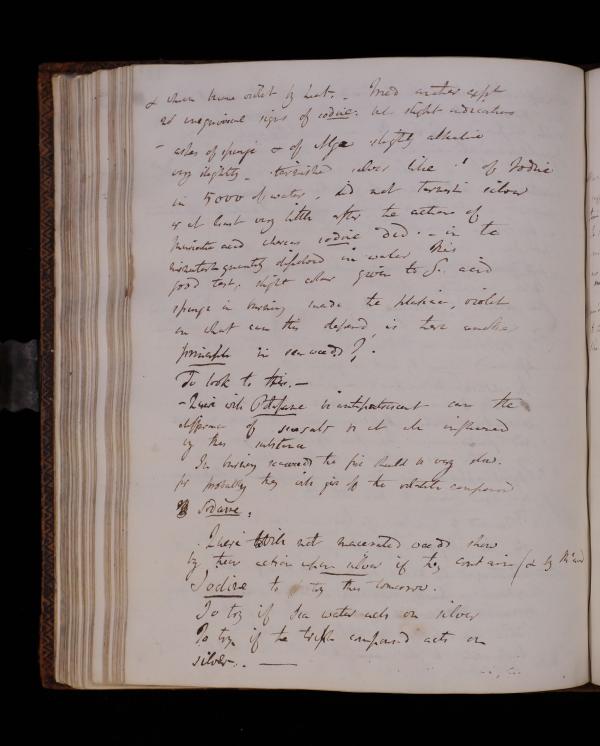 & when more violet by heat. - Tried another expt
no unequivocal signs of iodine: but slight indications
- ashes of sponge & of Algae slightly alkaline
very slightly - tarnished silver like of Iodine
in 5000 of water, did not tarnish silver
or at least very little after the action of
Muriatic acid whereas iodine did. - in the
minutest quantity dissolved in water this
good test; slight colour given to S. acid
sponge in burning made the platina, violet
on what can this depend, is there another
principle in sea weeds?.
To look to this. -
- Quere will Potassane be antiputrescent can the
difference of sea salt be at all influenced
by this substance
In burning seaweeds the fire should be very slow.
for probably they will give off the volatile compound
Iodane.
Quere will not macerated weeds show
by their action upon silver if they contain (& by
Iodine to try this tomorrow.
To try if sea water acts on silver
To try if the triple compound acts on
silver. -